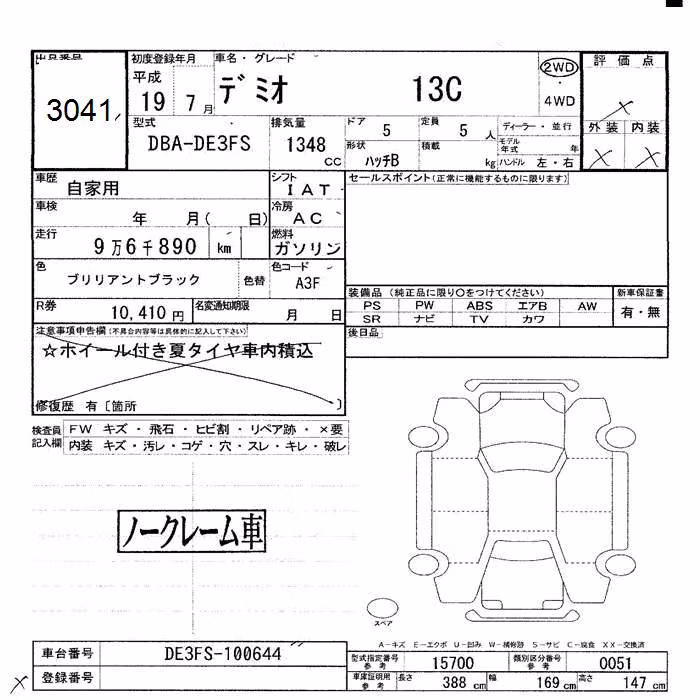 出品番号
3041
初度登録年月
平成
19 7月
車名・グレード
デミオ 13C
2WD
・
4WD
評価点
外装 内装
型式
DBA-DE3FS
排気量
1348
CC
ドア
5
定員
5人
ディーラー・並行
形状
ハッチB
積載
kg
モデル年式
年
ハンドル 左・右
車歴
自家用
シフト
IAT
セールスポイント(正常に機能するものに限ります)
車検
年 月( 日)
冷房
AC
走行
9万6千890 km
燃料
ガソリン
色
ブリリアントブラック
色替
色コード
A3F
装備品(純正品に限り〇をつけてください)
新車保証書
PS PW ABS エアB AW
SR ナビ TV カワ
有・無
R券
10,410円
名変通知期限
月 日
後日品
注意事項申告欄(不具合内容等は具体的に記入して下さい)
☆ホイール付き夏タイヤ車内積込
修復歴 有〔箇所 〕
検査員
記入欄
FW キズ・飛石・ヒビ割・リペア跡・×要
内装 キズ・汚レ・コゲ・穴・スレ・キレ・破レ
ノークレーム車
スペア
A-キズ E-エクボ U-凹み W-補修跡 S-サビ C-腐食 XX-交換済
車台番号
DE3FS-100644
登録番号
型式指定番号
参考
15700
類別区分番号
参考
0051
車庫証明用
参考
長さ
388cm
幅
169cm
高さ
147cm